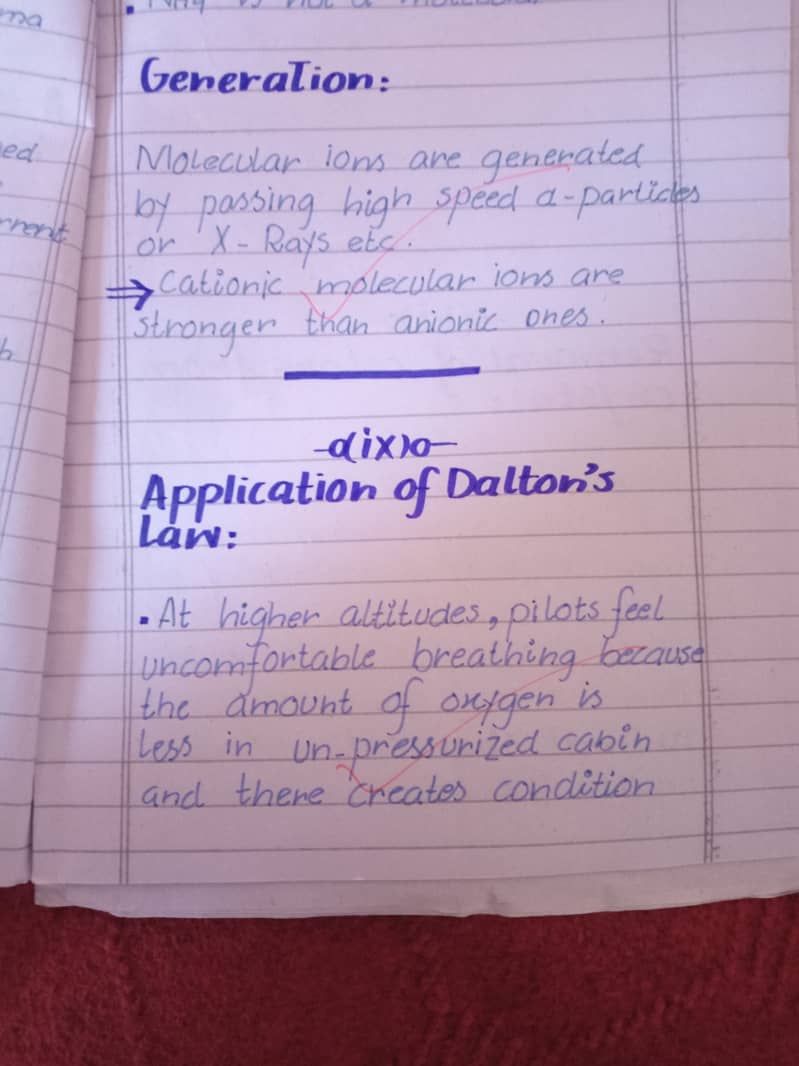 ma
ed
rrent
h
is not a
Generation:
Molecular ions are generated
by passing high speed α-particles
or X-Rays etc.
⇒ Cationic molecular ions are
stronger than anionic ones.
-α(ix)o-
Application of Dalton's
Law:
▪ At higher altitudes, pilots feel
uncomfortable breathing because
the amount of oxygen is
less in un-pressurized cabin
and there creates condition